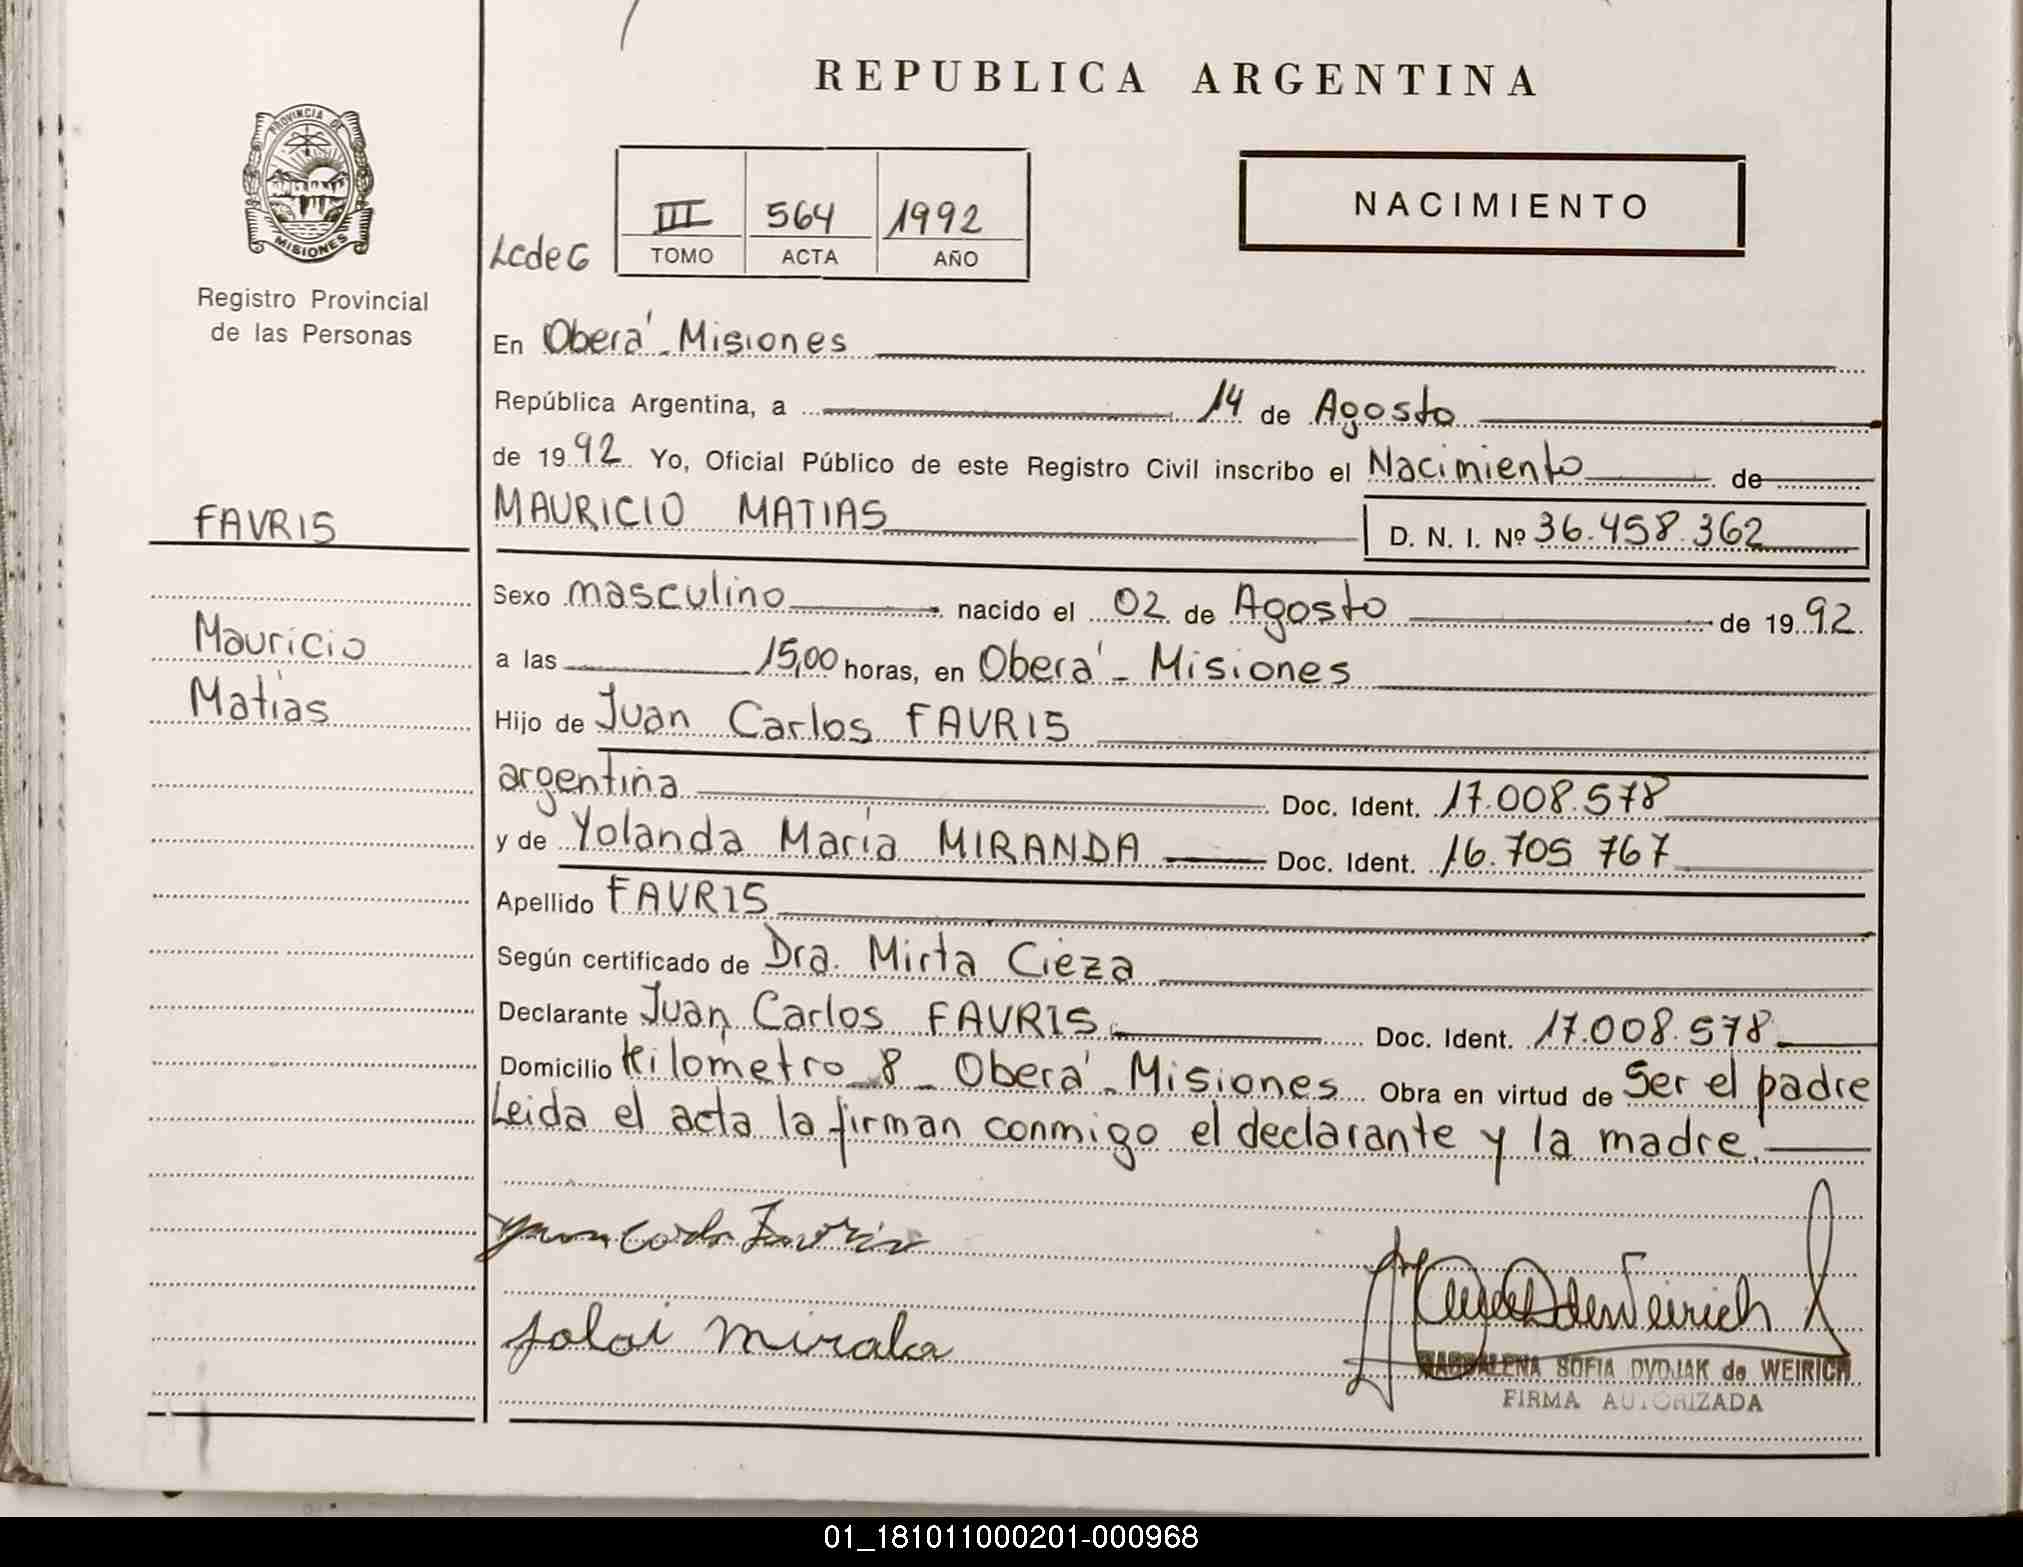 REPUBLICA ARGENTINA
PROVINCIA DE
MISIONES
Registro Provincial
de las Personas
LcdeG
III 564 1992
TOMO ACTA AÑO
NACIMIENTO
En Oberá - Misiones
República Argentina, a 14 de Agosto
de 1992 Yo, Oficial Público de este Registro Civil inscribo el Nacimiento de
FAVRIS
MAURICIO MATIAS D. N. I. Nº 36.458.362
Sexo masculino nacido el 02 de Agosto de 1992
Mauricio
a las 15,00 horas, en Oberá - Misiones
Matías
Hijo de Juan Carlos FAVRIS
argentina Doc. Ident. 17.008.578
y de Yolanda María MIRANDA Doc. Ident. 16.705 767
Apellido FAVRIS
Según certificado de Dra. Mirta Cieza
Declarante Juan Carlos FAVRIS Doc. Ident. 17.008.578
Domicilio Kilómetro 8 - Oberá - Misiones Obra en virtud de Ser el padre
Leida el acta la firman conmigo el declarante y la madre.
MAGDALENA SOFIA DVOJAK de WEIRICH
FIRMA AUTORIZADA
01_181011000201-000968